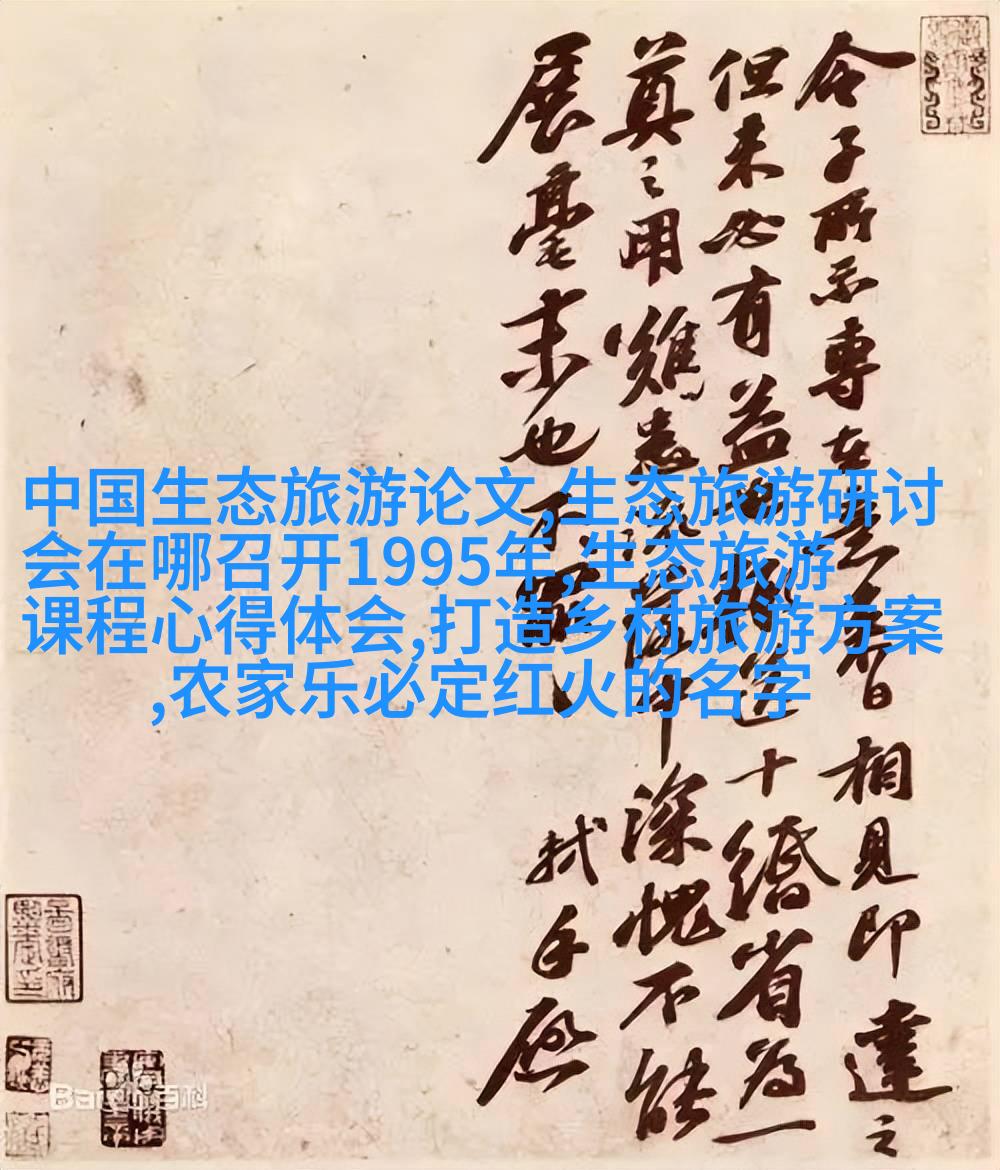 令子所示專在意來日相見即達之
但未必有益也輒送十緡省為一
奠之用雖 中深愧不能
展毫末也不罪
軾手啟
中国生态旅游论文,生态旅游研讨
会在哪召开1995年,生态旅游
课程心得体会,打造乡村旅游方案
,农家乐必定红火的名字
Baidu百科